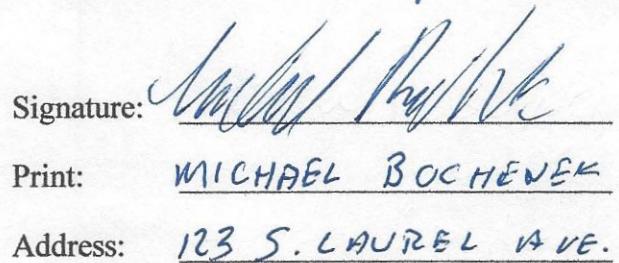 Signature:
Print: MICHAEL BOCHENEK
Address: 123 S. LAUREL AVE.